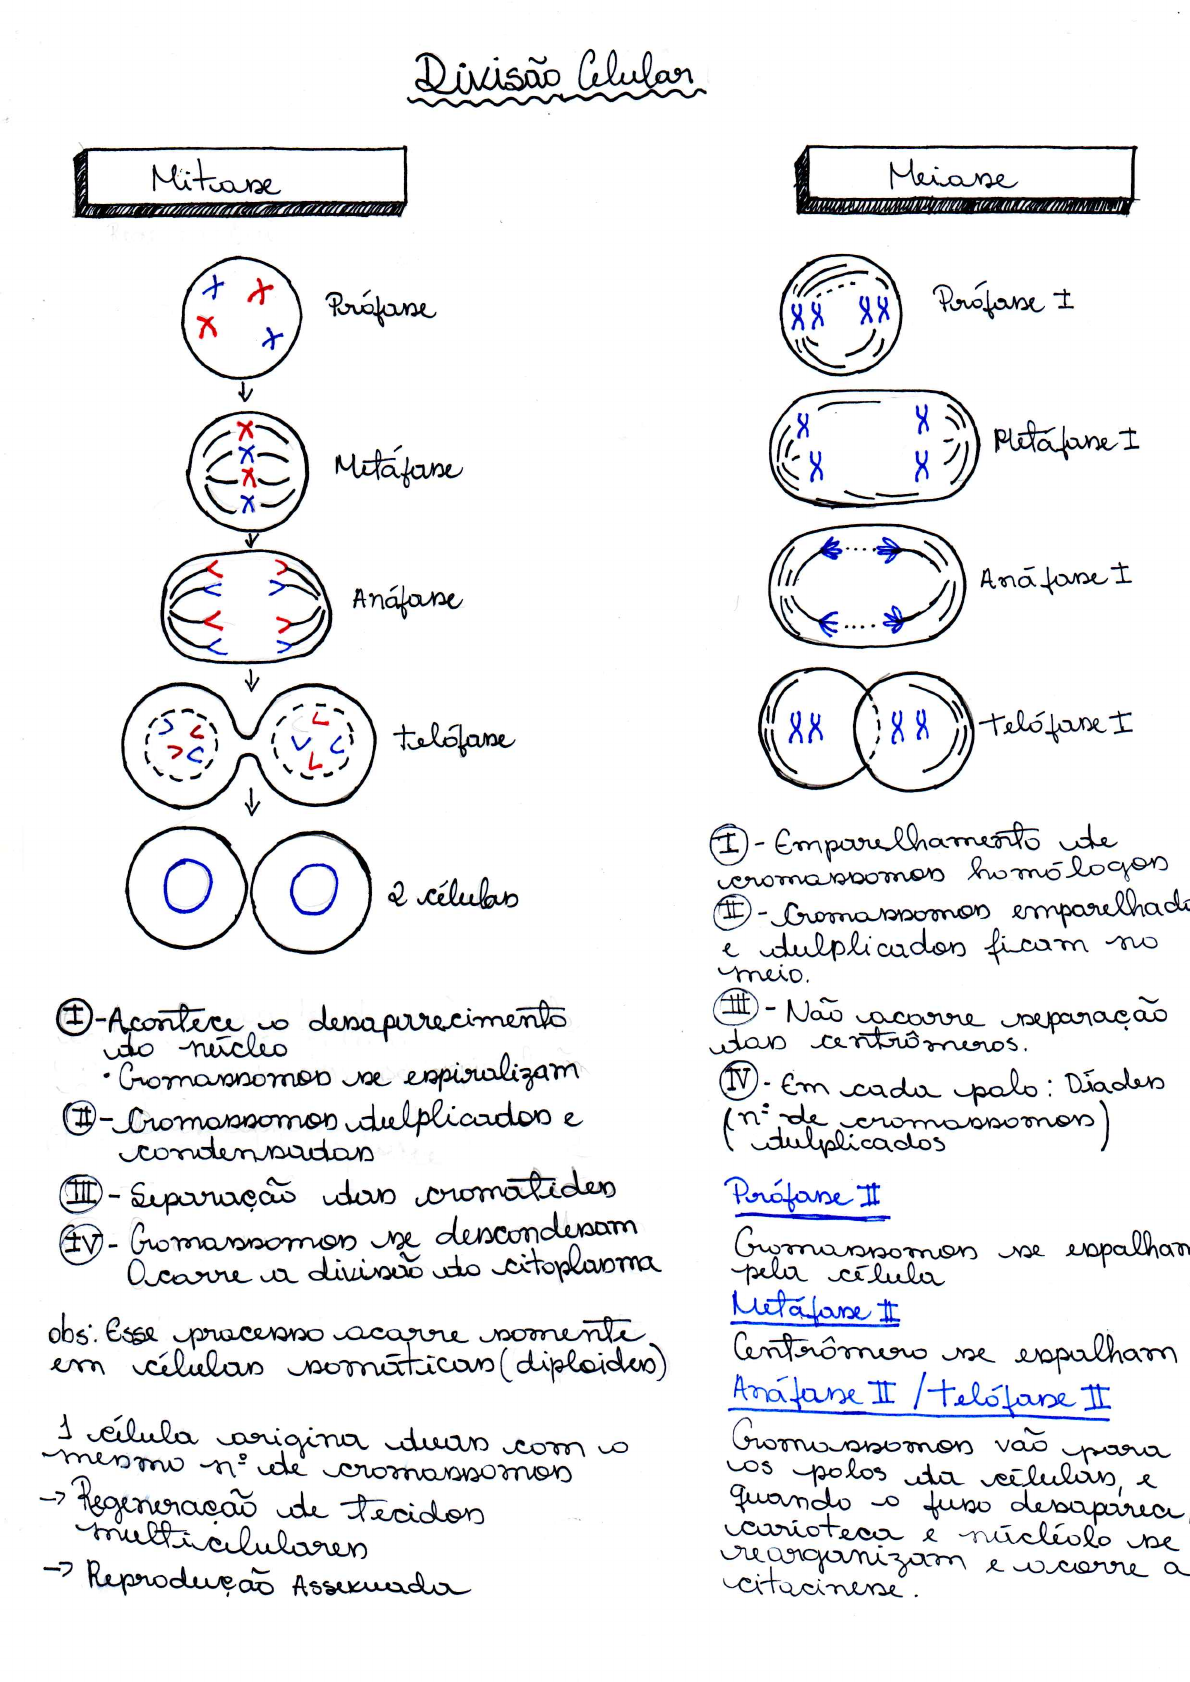 Divisão Celular
Mitose
Prófase
Metáfase
Anáfase
telófase
2 células
I - Acontece o desaparecimento
do núcleo
• Cromossomos se espiralizam
II - Cromossomos dulplicados e
condensados
III - Separação das cromátides
IV - Cromossomos se descondesam
Ocorre a divisão do citoplasma
obs: Esse processo ocorre somente
em células somáticas (diploides)
1 célula origina duas com o
mesmo nº de cromossomos
-> Regeneração de tecidos
multicelulares
-> Reprodução Assexuada
Meiose
Prófase I
Metáfase I
Anáfase I
telófase I
I - Emparelhamento de
cromossomos homólogos
II - Cromossomos emparelhado
e dulplicados ficam no
meio.
III - Não ocorre separação
dos centrômeros.
IV - Em cada polo: Díades
(nº de cromossomos)
( dulplicados )
Prófase II
Cromossomos se espalham
pela célula
Metáfase II
Centrômero se espalham
Anáfase II / telófase II
Cromossomos vão para
os polos da células, e
quando o fuso desapareca,
carioteca e núcléolo se
rearganizam e ocorre a
citocinese.